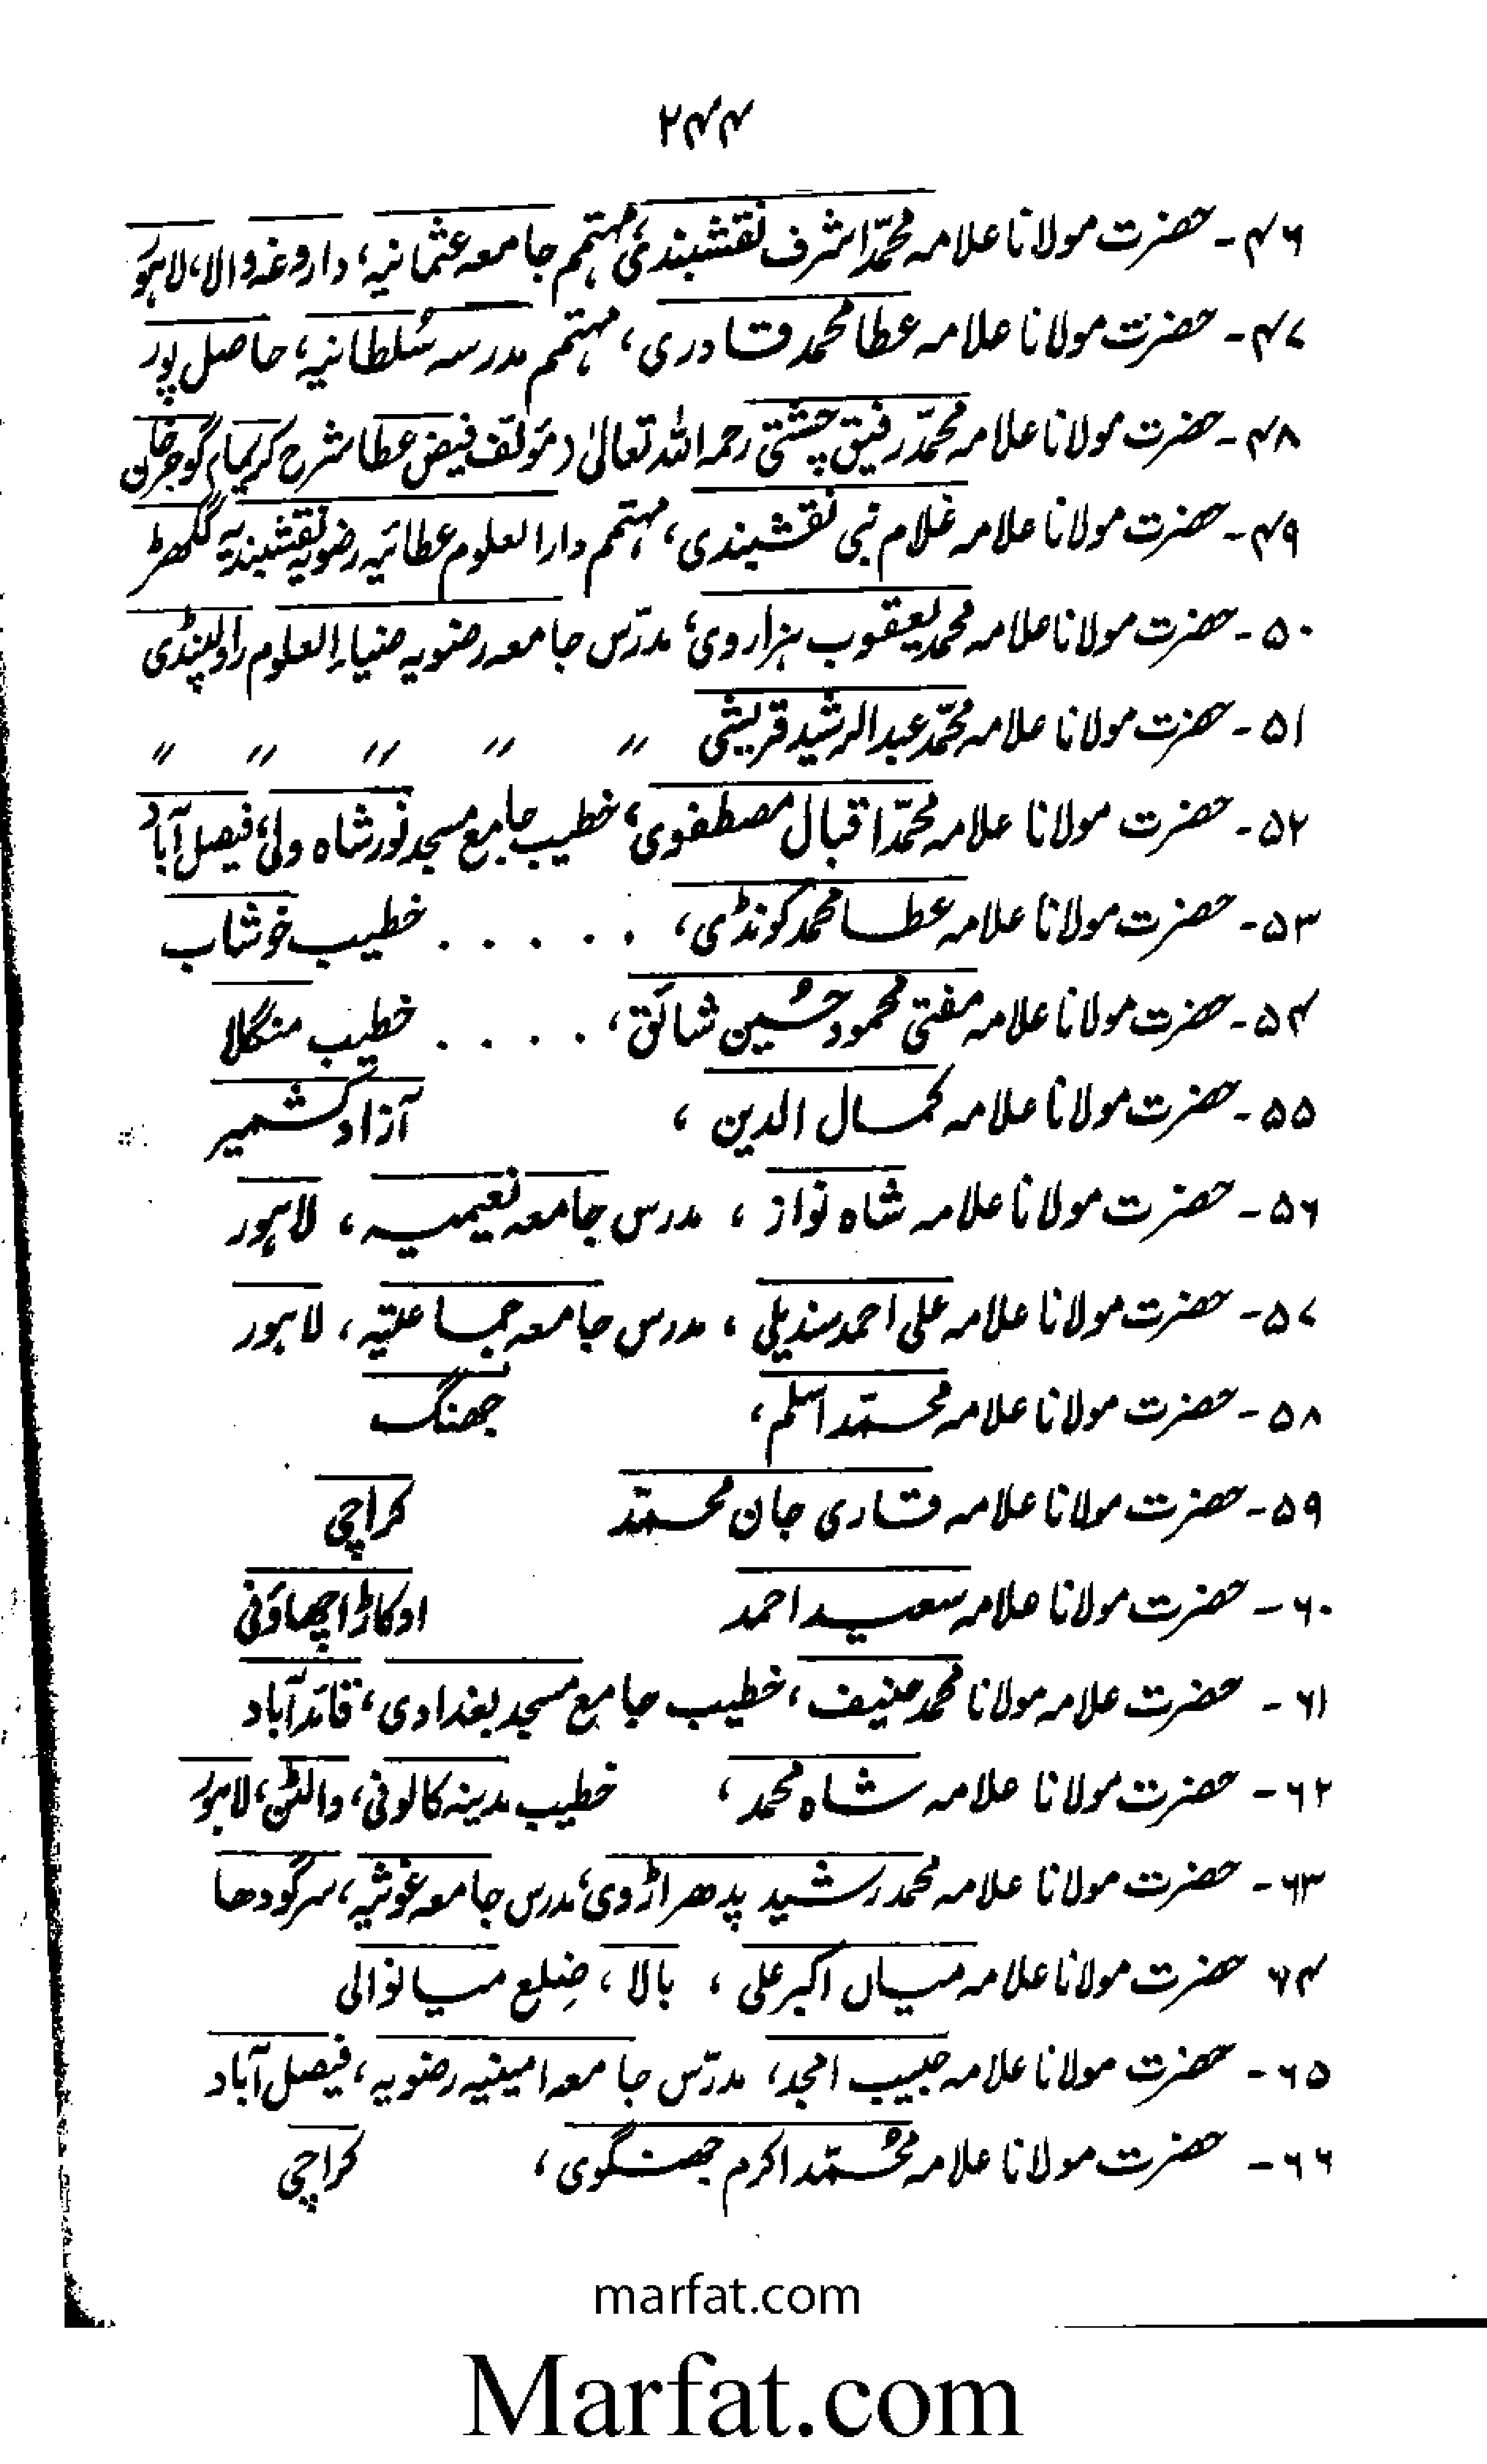 ۲۴۴
۴۶۔ حضرت مولانا علامہ محمّد اشرف نقشبندی، مہتمم جامعہ عثمانیہ، داروغہ والا، لاہور
۴۷۔ حضرت مولانا علامہ عطا محمد قادری، مہتمم مدرسہ سُلطانیہ، حاصل پور
۴۸۔ حضرت مولانا علامہ محمّد رفیق چشتی رحمہ اللہ تعالیٰ (مؤلف فیض عطا شرح کریما) گوجرخان
۴۹۔ حضرت مولانا علامہ غلام نبی نقشبندی، مہتمم دارالعلوم عطائیہ رضویہ نقشبندیہ گکھڑ
۵۰۔ حضرت مولانا علامہ محمد یعقوب ہزاروی، مدرّس جامعہ رضویہ ضیاء العلوم راولپنڈی
۵۱۔ حضرت مولانا علامہ محمّد عبدالرشید قریشی 〃 〃 〃 〃 〃
۵۲۔ حضرت مولانا علامہ محمّد اقبال مصطفوی، خطیب جامع مسجد نور شاہ ولی، فیصل آباد
۵۳۔ حضرت مولانا علامہ عطا محمد گونڈی، . . . . . خطیب خوشاب
۵۴۔ حضرت مولانا علامہ مفتی محمود حُسین شائق، . . . . خطیب منگلا
۵۵۔ حضرت مولانا علامہ کمال الدین ، آزاد کشمیر
۵۶۔ حضرت مولانا علامہ شاہ نواز ، مدرس جامعہ نعیمیہ ، لاہور
۵۷۔ حضرت مولانا علامہ علی احمد سندیلی ، مدرس جامعہ جماعتیہ ، لاہور
۵۸۔ حضرت مولانا علامہ محمّد اسلم، جھنگ
۵۹۔ حضرت مولانا علامہ قاری جان محمّد کراچی
۶۰۔ حضرت مولانا علامہ سعید احمد اوکاڑا چھاؤنی
۶۱۔ حضرت علامہ مولانا محمد حنیف ، خطیب جامع مسجد بغدادی، قائد آباد
۶۲۔ حضرت مولانا علامہ شاہ محمد ، خطیب مدینہ کالونی، والٹن، لاہور
۶۳۔ حضرت مولانا علامہ محمد رشید پدھراڑوی، مدرس جامعہ غوثیہ ، سرگودھا
۶۴ حضرت مولانا علامہ میاں اکبر علی ، بالا ، ضِلع میانوالی
۶۵۔ حضرت مولانا علامہ حبیب امجد، مدرّس جامعہ امینیہ رضویہ ، فیصل آباد
۶۶۔ حضرت مولانا علامہ مُحمّد اکرم جھنگوی ، کراچی
marfat.com
Marfat.com